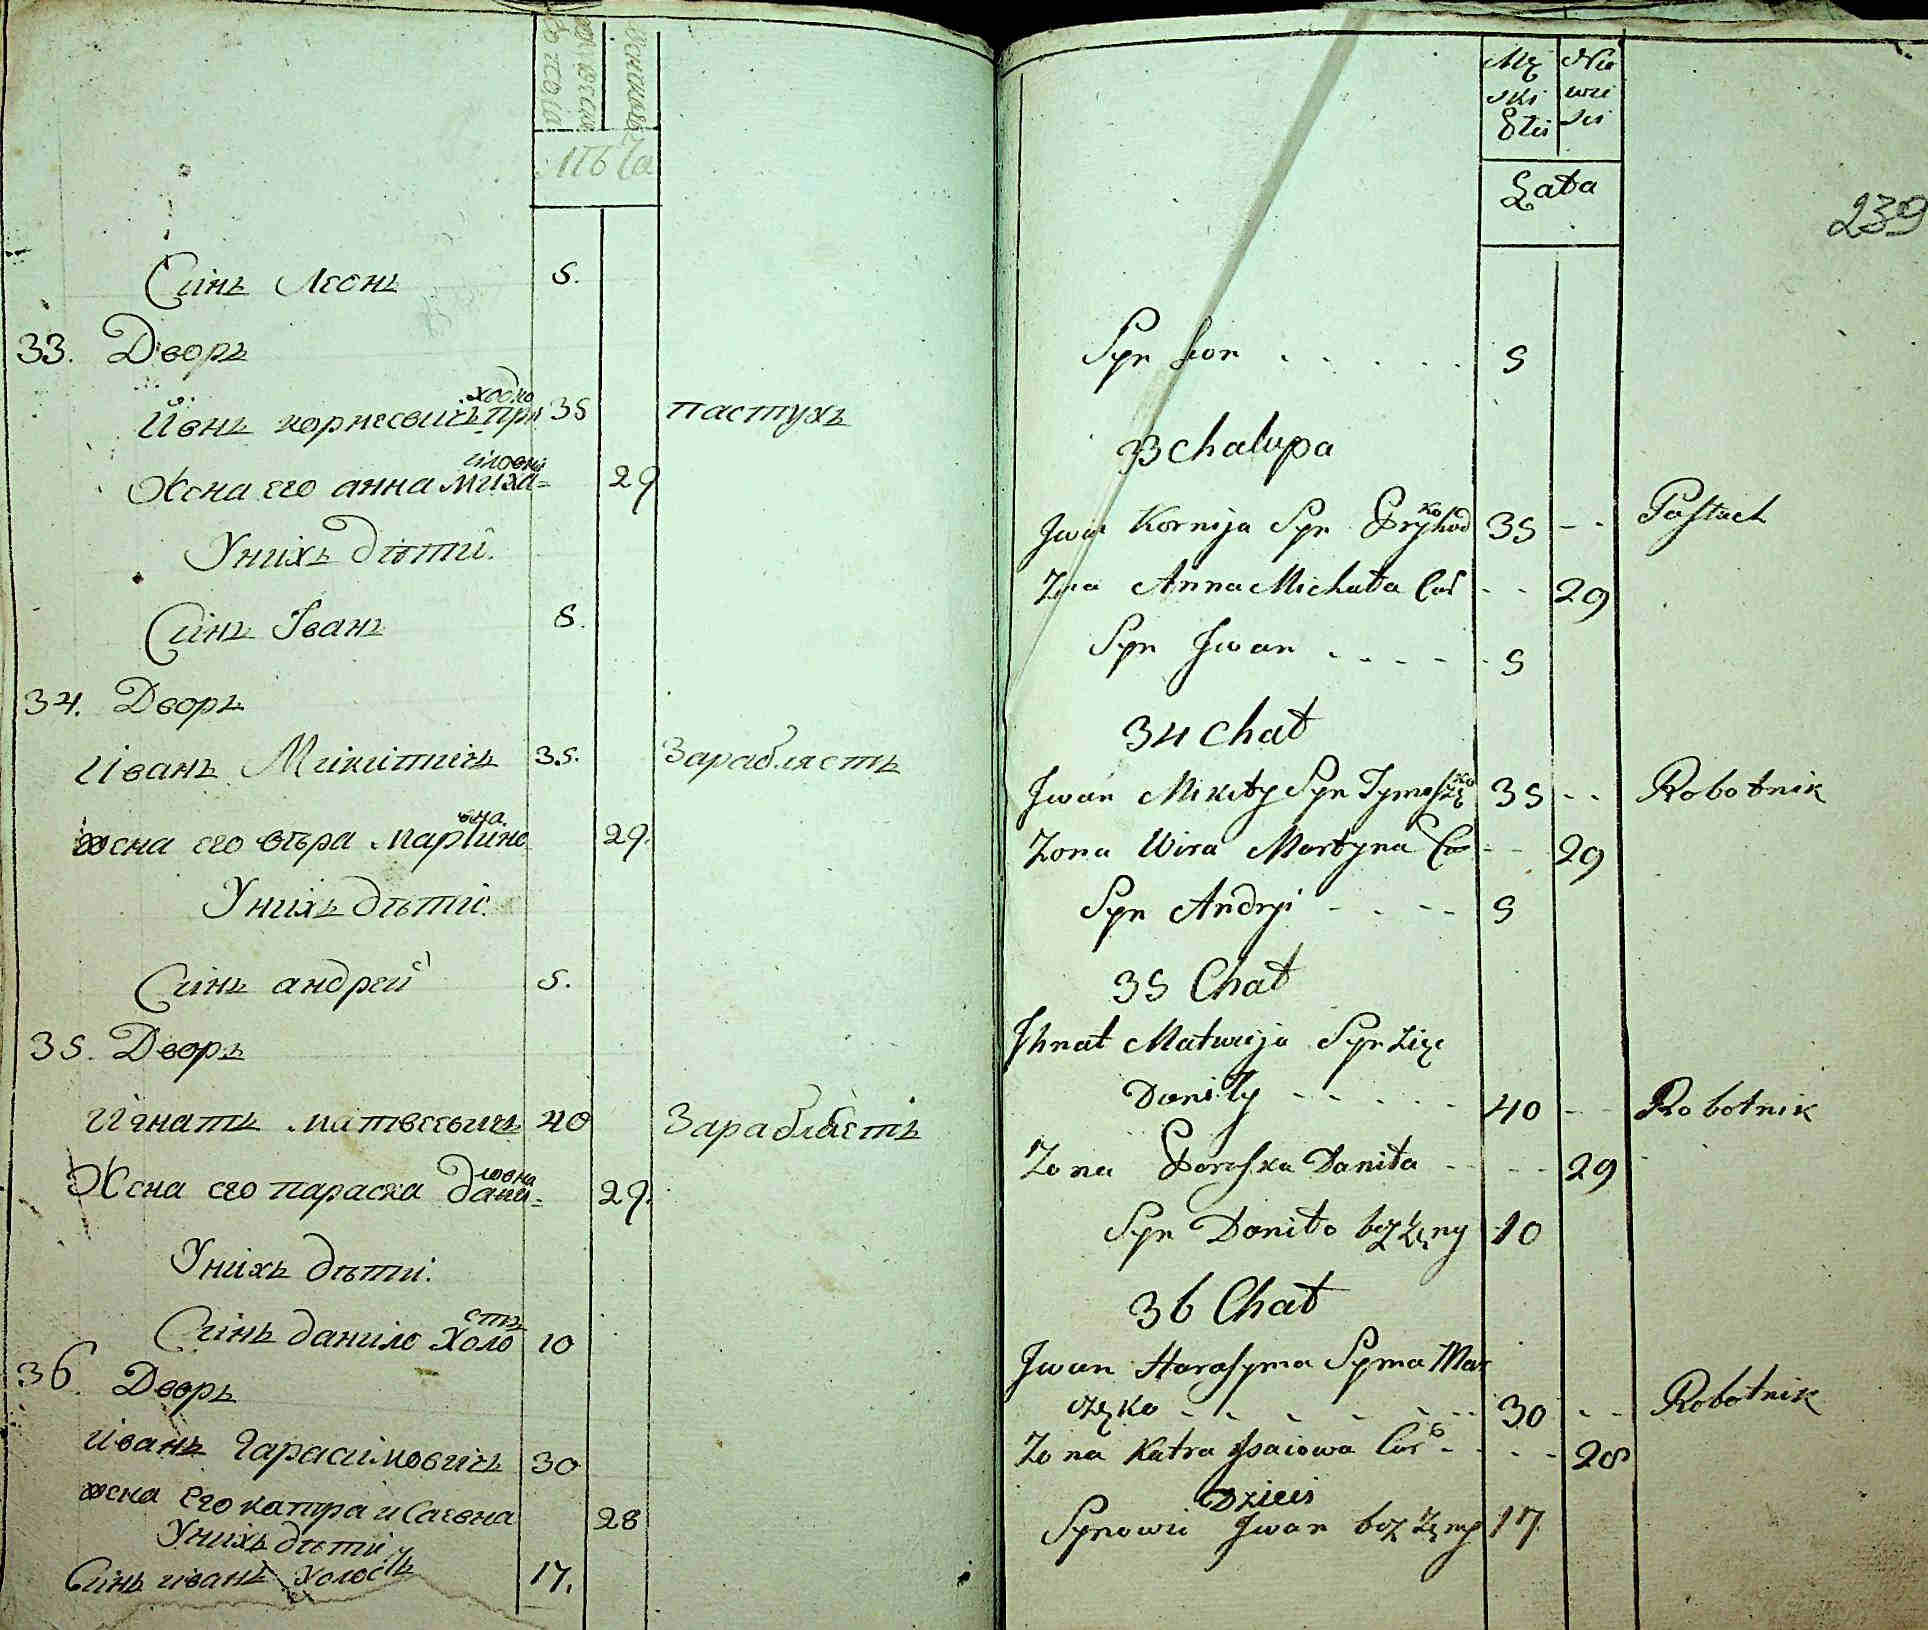 мужеска
пола
женска
Лѣта
Синъ Леонъ 5.
33. Дворъ
Иванъ корнеевичъ приходко 35 пастухъ
Жена его анна михаиловна 29
У нихъ дѣти.
Синъ Іванъ 5.
34. Дворъ
Иванъ Микитичъ 35. Зарабляетъ
жена его вѣра мартиновна 29.
У нихъ дѣти.
Синъ андрей 5.
35. Дворъ
Игнатъ матвеевичъ 40 Зарабляетъ
Жена его параска даниловна 29.
У нихъ дѣти.
Синъ данило холостъ 10
36. Дворъ
Иванъ Гарасимовичъ 30
жена его катра исаевна 28
У нихъ дѣти
Синъ иванъ холостъ 17.
Mę Nie
ski wie
Płci sci
Lata
239
Syn Leon 5
33 chalupa
Jwan Kornija Syn Pryhodko 35 Pastuch
Zna Anna Michała Cor 29
Syn Jwan 5
34 Chał
Jwan Mikity Syn Tymoszęko 35 Robotnik
Zona Wira Martyna Cor 29
Syn Andryi 5
35 Chał
Jhnat Matwija Syn zięc
Daniły 40 Robotnik
Zona Paraska Daniła 29
Syn Daniło bez żęny 10
36 Chał
Jwan Harasyma Syma Mar
częko 30 Robotnik
Zona Katra Jsaiowa Cor 28
Dzieci
Synowie Jwan bez żęny 17